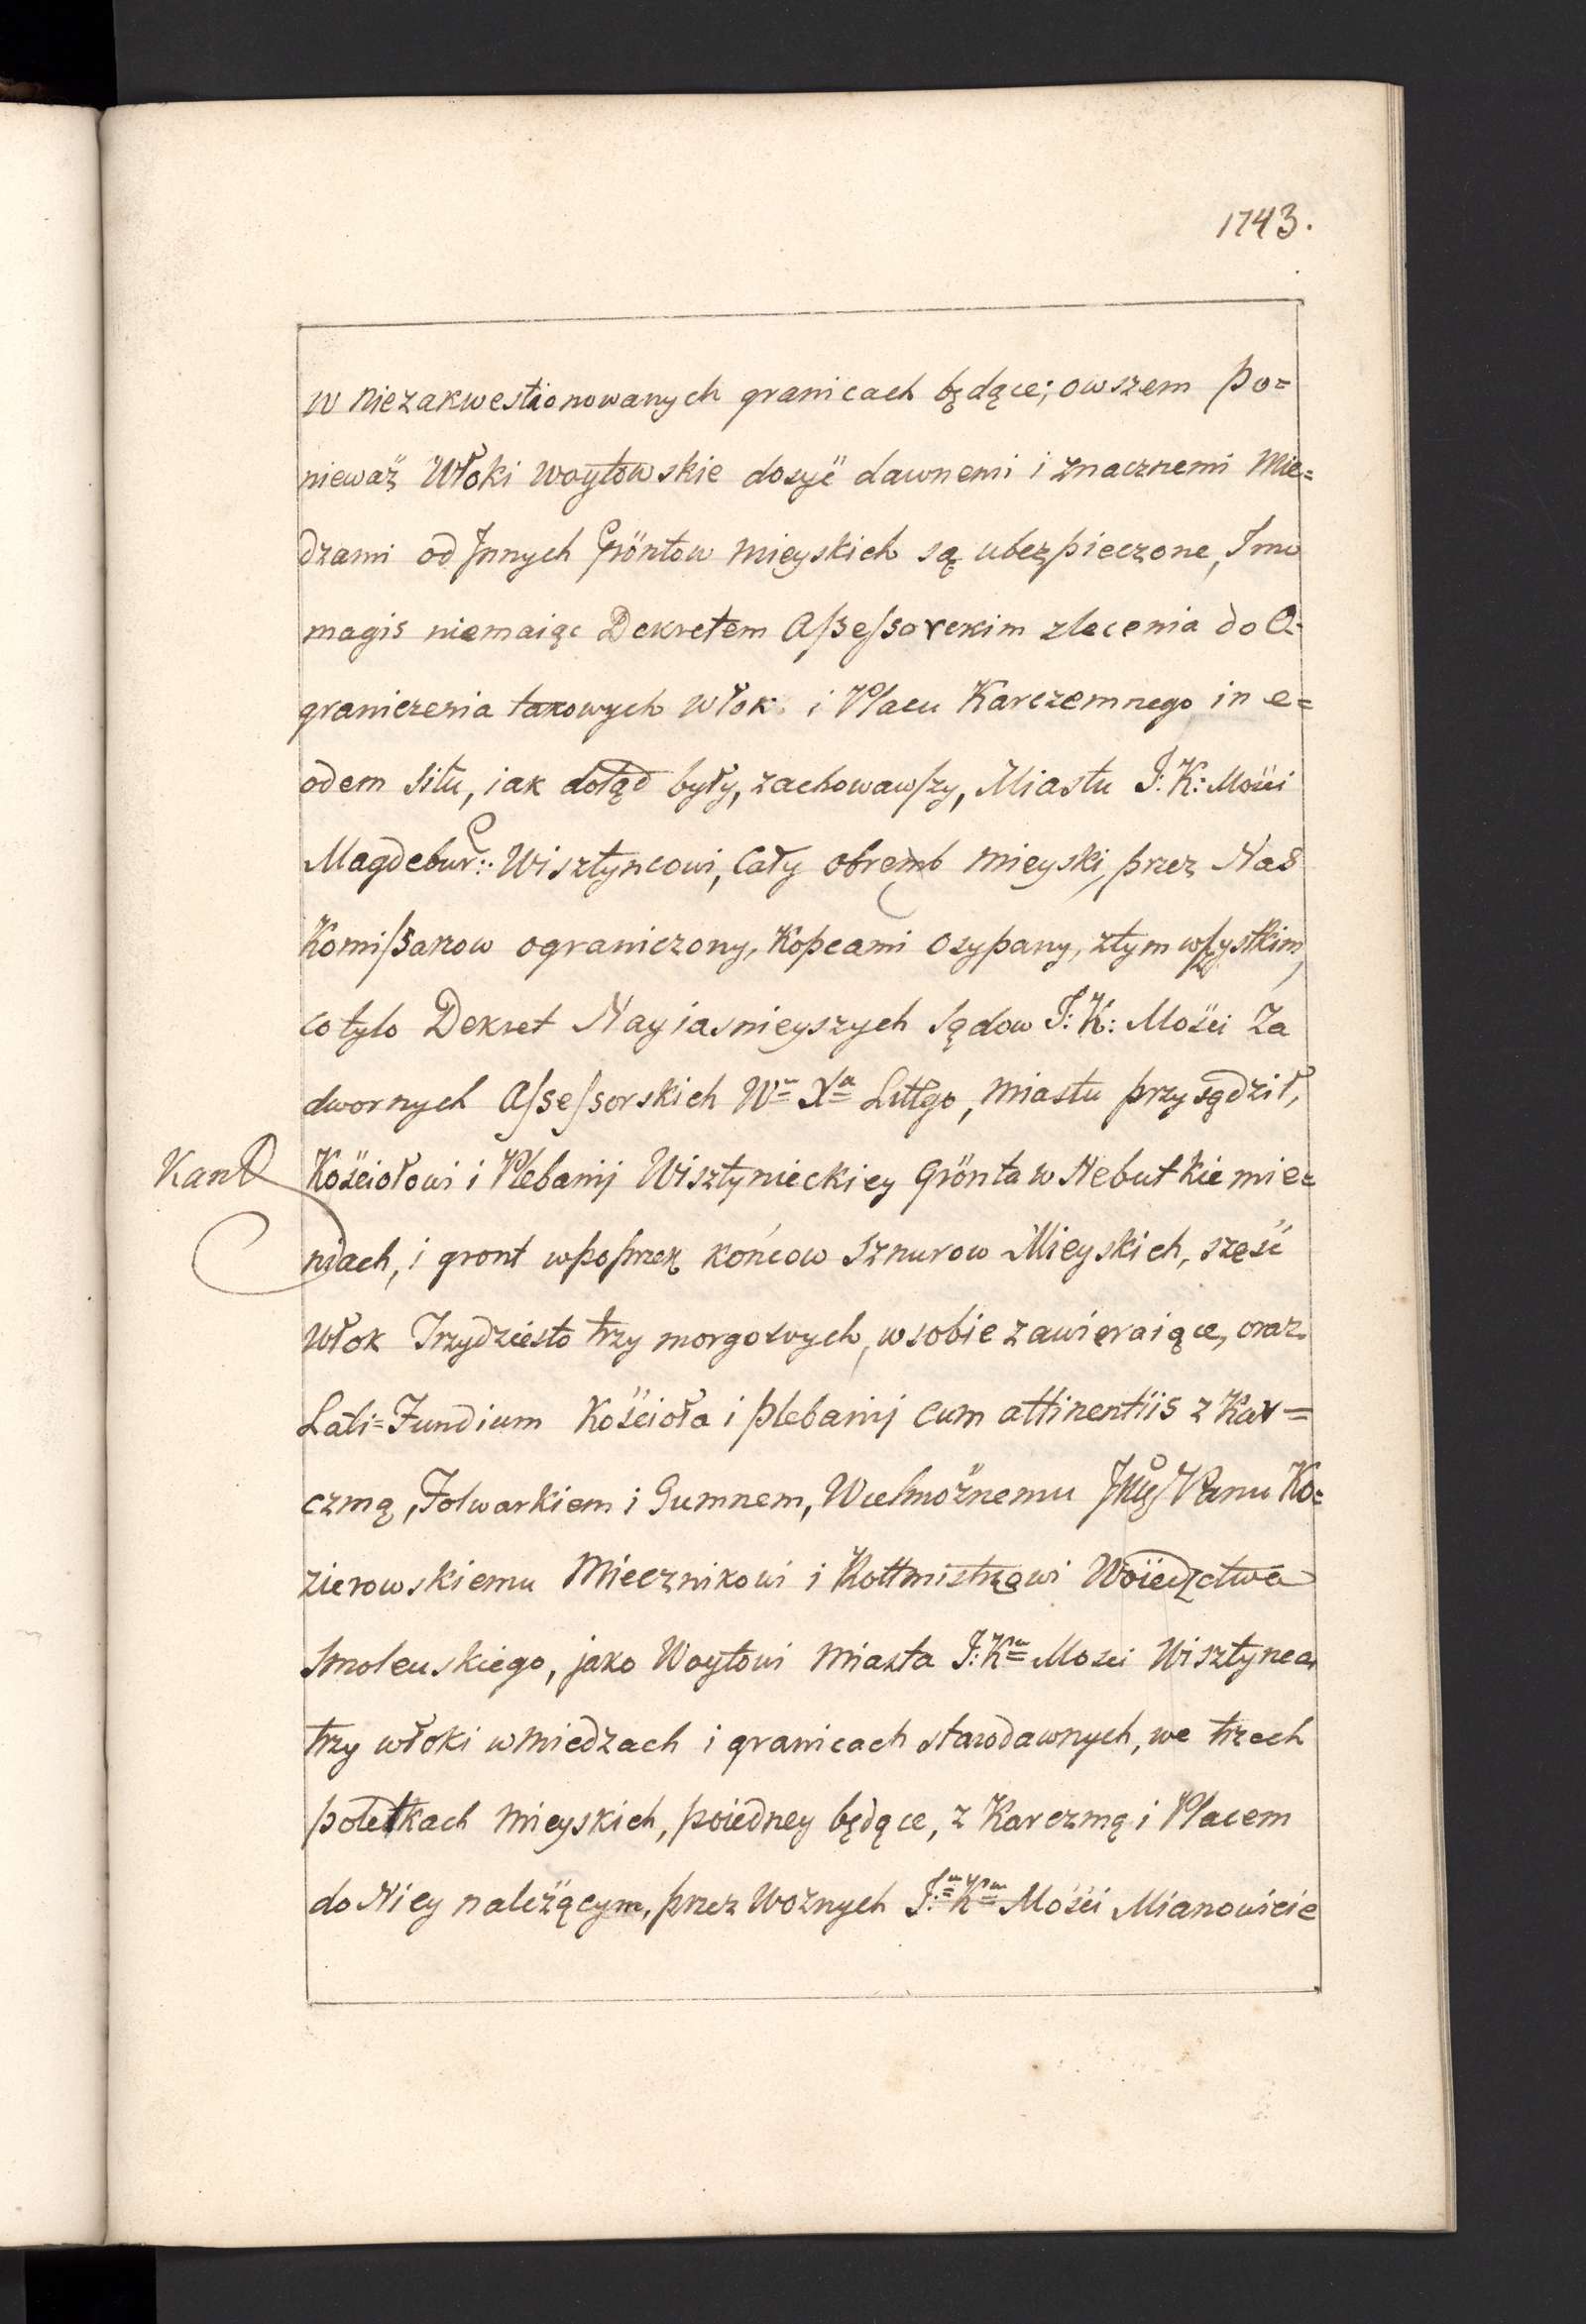 1743.
w niezakwestionowanych granicach będące; owszem po=
nieważ Włoki woytowskie dosyć dawnemi i znacznemi Mie=
dzami od Jnnych Gröntow mieyskich są ubezpieczone, Imo
magis niemaiąc Dekretem Assessorckim zlecenia do O=
graniczenia takowych włok i Placu Karczemnego in e=
odem situ, iak dotąd były, zachowawszy, Miastu J: K: Mości
Magdebur: Wisztyncowi, Cały obremb mieyski, przez Nas
Komissarzow ograniczony, Kopcami osypany, ztym wszystkim,
co tylo Dekret Nayiasnieyszych Sądow J: K: Mości Za
dwornych Assessorskich Wo Xa Littgo, miastu przysądził,
Kościołowi i Plebanij Wisztynieckiey Grönta w Nebutkiemie=
niach, i gront wpoprzek końcow Sznurow Mieyskich, sześć
włok Trzydziesto trzy morgowych, w sobie zawieraiące, oraz
Lati=Fundium Kościoła i plebanij cum attinentiis z Kar=
czmą, Folwarkiem i Gumnem, Wielmożnemu Panu Ko=
zierowskiemu Miecznikowi i Rottmistrzowi Woiewdztwa
Smolenskiego, jako Woytowi Miasta J: Ka Mosci Wisztynca
trzy włoki w miedzach i granicach starodawnych, we trzech
poletkach mieyskich, poiedney będące, z Karczmą i Placem
do Niey należącym, przez Woznych J: K Mości Mianowicie